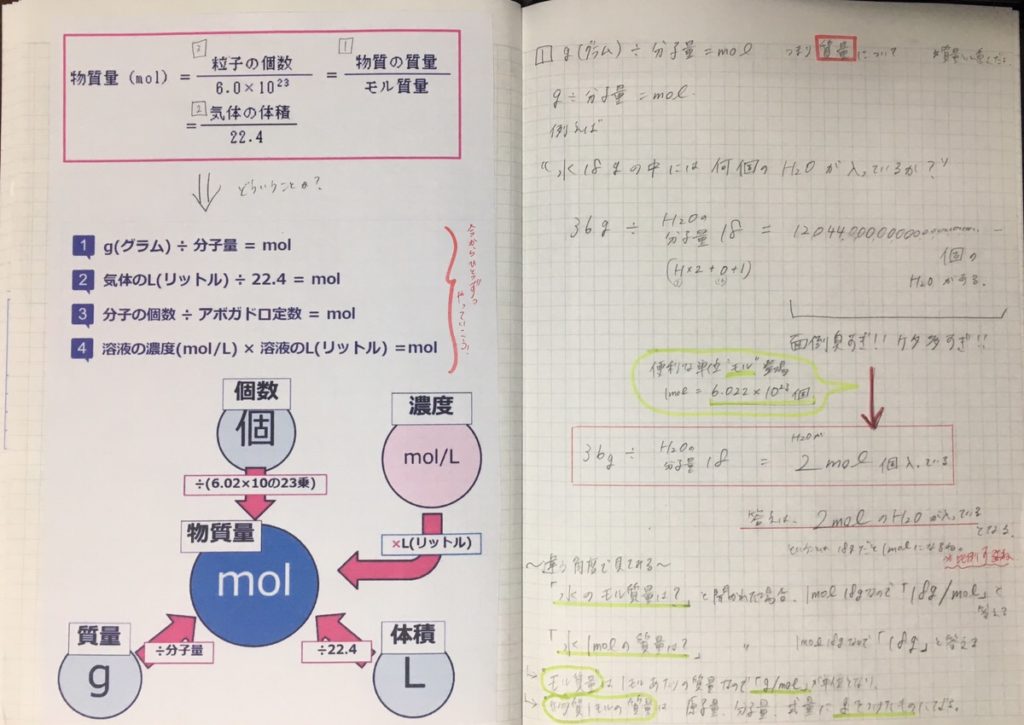 物質量(mol) = 粒子の個数 / 6.0×10²³ = 物質の質量 / モル質量
3
1
= 気体の体積 / 22.4
2
どういうことか?
1 g(グラム) ÷ 分子量 = mol
2 気体のL(リットル) ÷ 22.4 = mol
3 分子の個数 ÷ アボガドロ定数 = mol
4 溶液の濃度(mol/L) × 溶液のL(リットル) =mol
今からひとつずつ
やっていこう!
個数
個
÷(6.02×10の23乗)
濃度
mol/L
×L(リットル)
物質量
mol
質量
g
÷分子量
体積
L
÷22.4
1 g(グラム) ÷ 分子量 = mol つまり 質量 について
g ÷ 分子量 = mol.
例えば
"水18gの中には何個のH2Oが入っているか?"
36g ÷ H2Oの分子量 18 = 12044000000000000
(H×2+O+1)
個の
H2Oがある.
面倒臭すぎ!! ケタ多すぎ!!
便利な単位"モル"登場
1mol = 6.022×10²³個
36g ÷ H2Oの分子量 18 = H2Oが 2mol 個入っている
答えは、2molのH2Oが入っている
となる.
ということは 18gだと1molになるね。
※比例する
〜違う角度で見てみる〜
「水のモル質量は?」と聞かれた場合、1mol 18gなので「18g/mol」と
答える
「水1molの質量は?」 〃 1mol 18gなので「18g」と答える
モル質量は1モルあたりの質量なので「g/mol」が単位となり、
物質1モルの質量は 原子量、分子量、式量に gをつけたものになる。